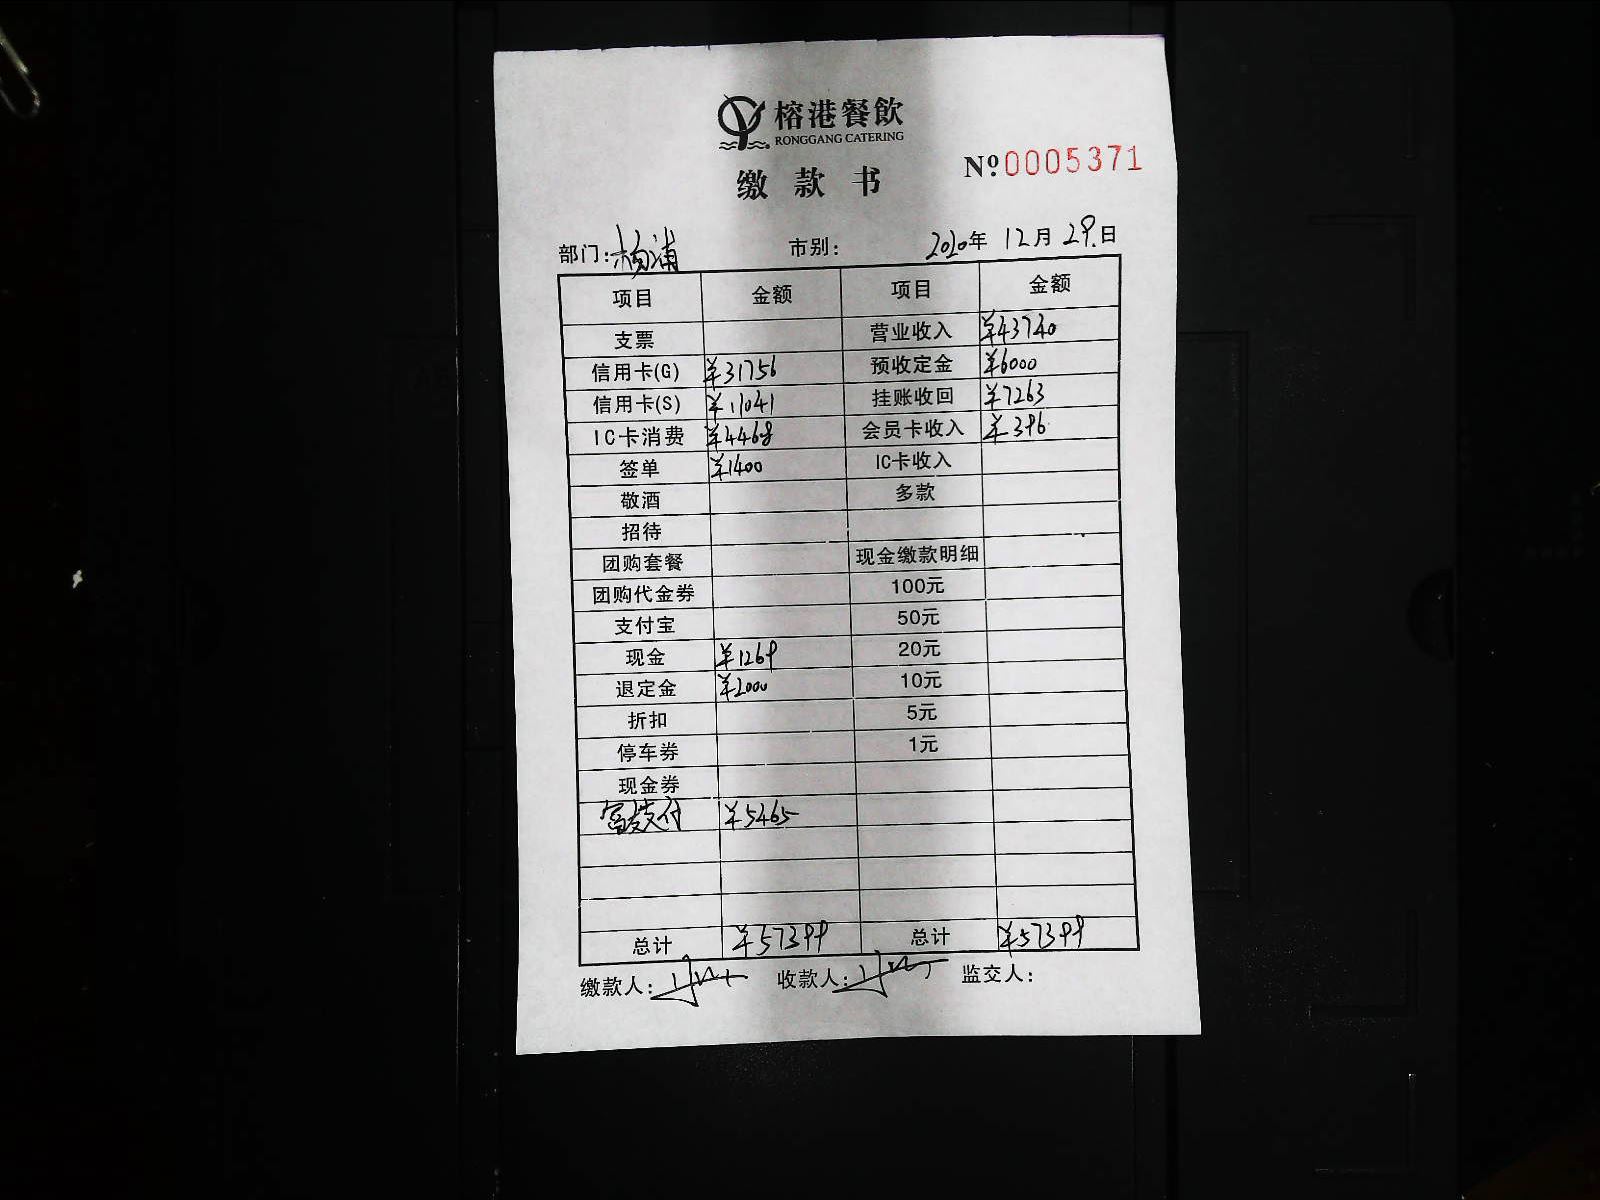 榕港餐飲
RONGGANG CATERING
缴款书
№0005371
部门:杨浦 市别: 2020年 12月 29日
项目 金额 项目 金额
支票 营业收入 ¥43740
信用卡(G) ¥31756 预收定金 ¥6000
信用卡(S) ¥11041 挂账收回 ¥7263
IC卡消费 ¥4468 会员卡收入 ¥396
签单 ¥1400 IC卡收入
敬酒 多款
招待
团购套餐 现金缴款明细
团购代金券 100元
支付宝 50元
现金 ¥1269 20元
退定金 ¥2000 10元
折扣 5元
停车券 1元
现金券
富友支付 ¥5465
总计 ¥57399 总计 ¥57399
缴款人: 收款人: 监交人: